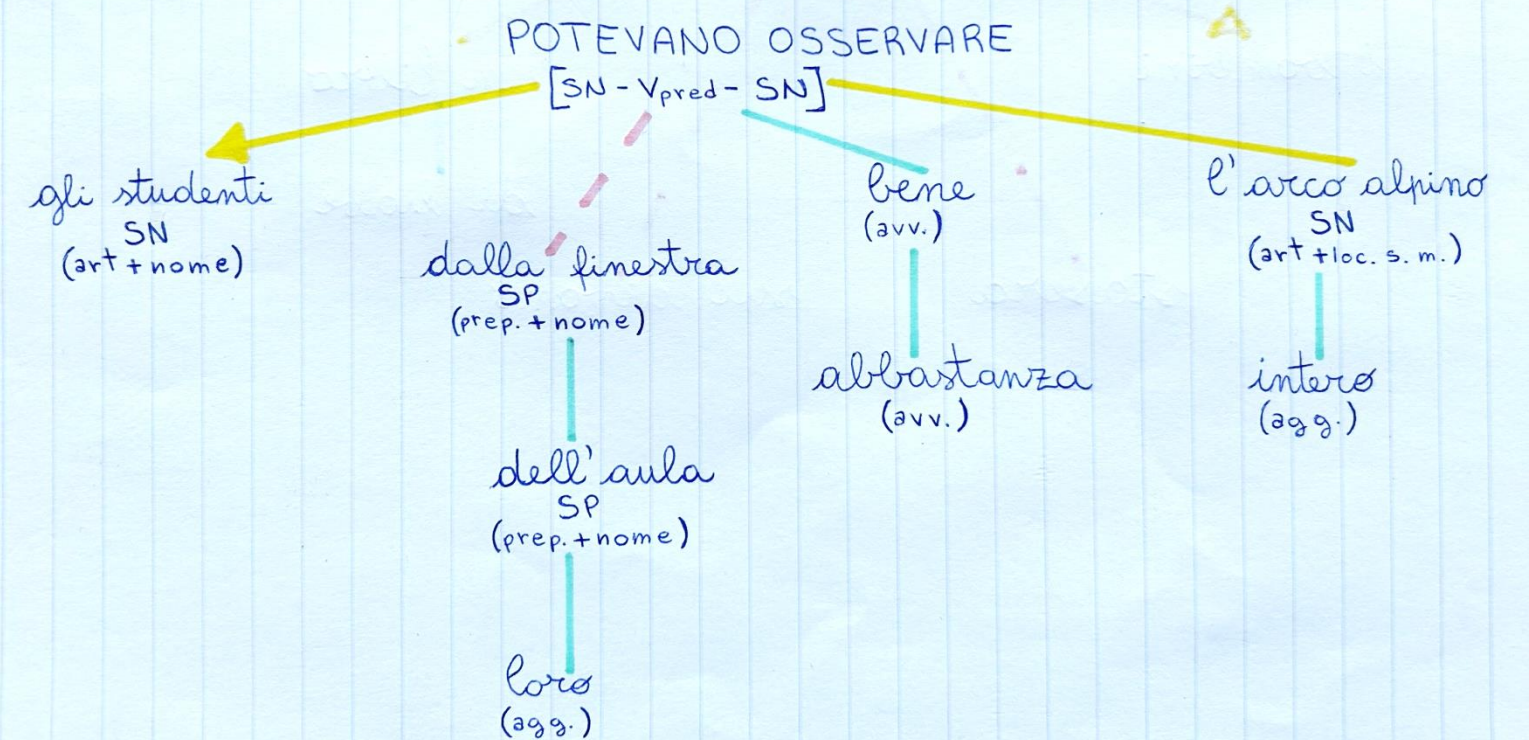 POTEVANO OSSERVARE
[SN - Vpred - SN]
gli studenti
SN
(art + nome)
dalla finestra
SP
(prep. + nome)
dell'aula
SP
(prep. + nome)
loro
(agg.)
bene
(avv.)
abbastanza
(avv.)
l'arco alpino
SN
(art + loc. s. m.)
intero
(agg.)